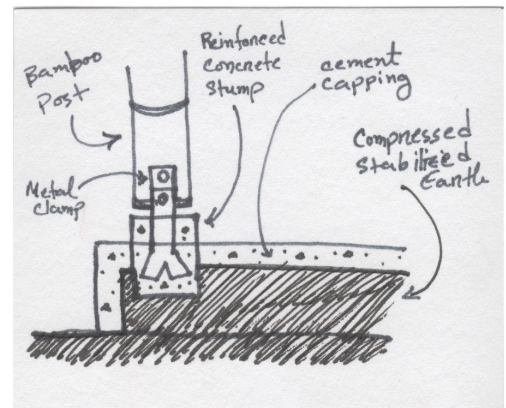 Bamboo
Post
Reinforced
Concrete
Stump
cement
capping
Compressed
Stabilized
Earth
Metal
Clamp